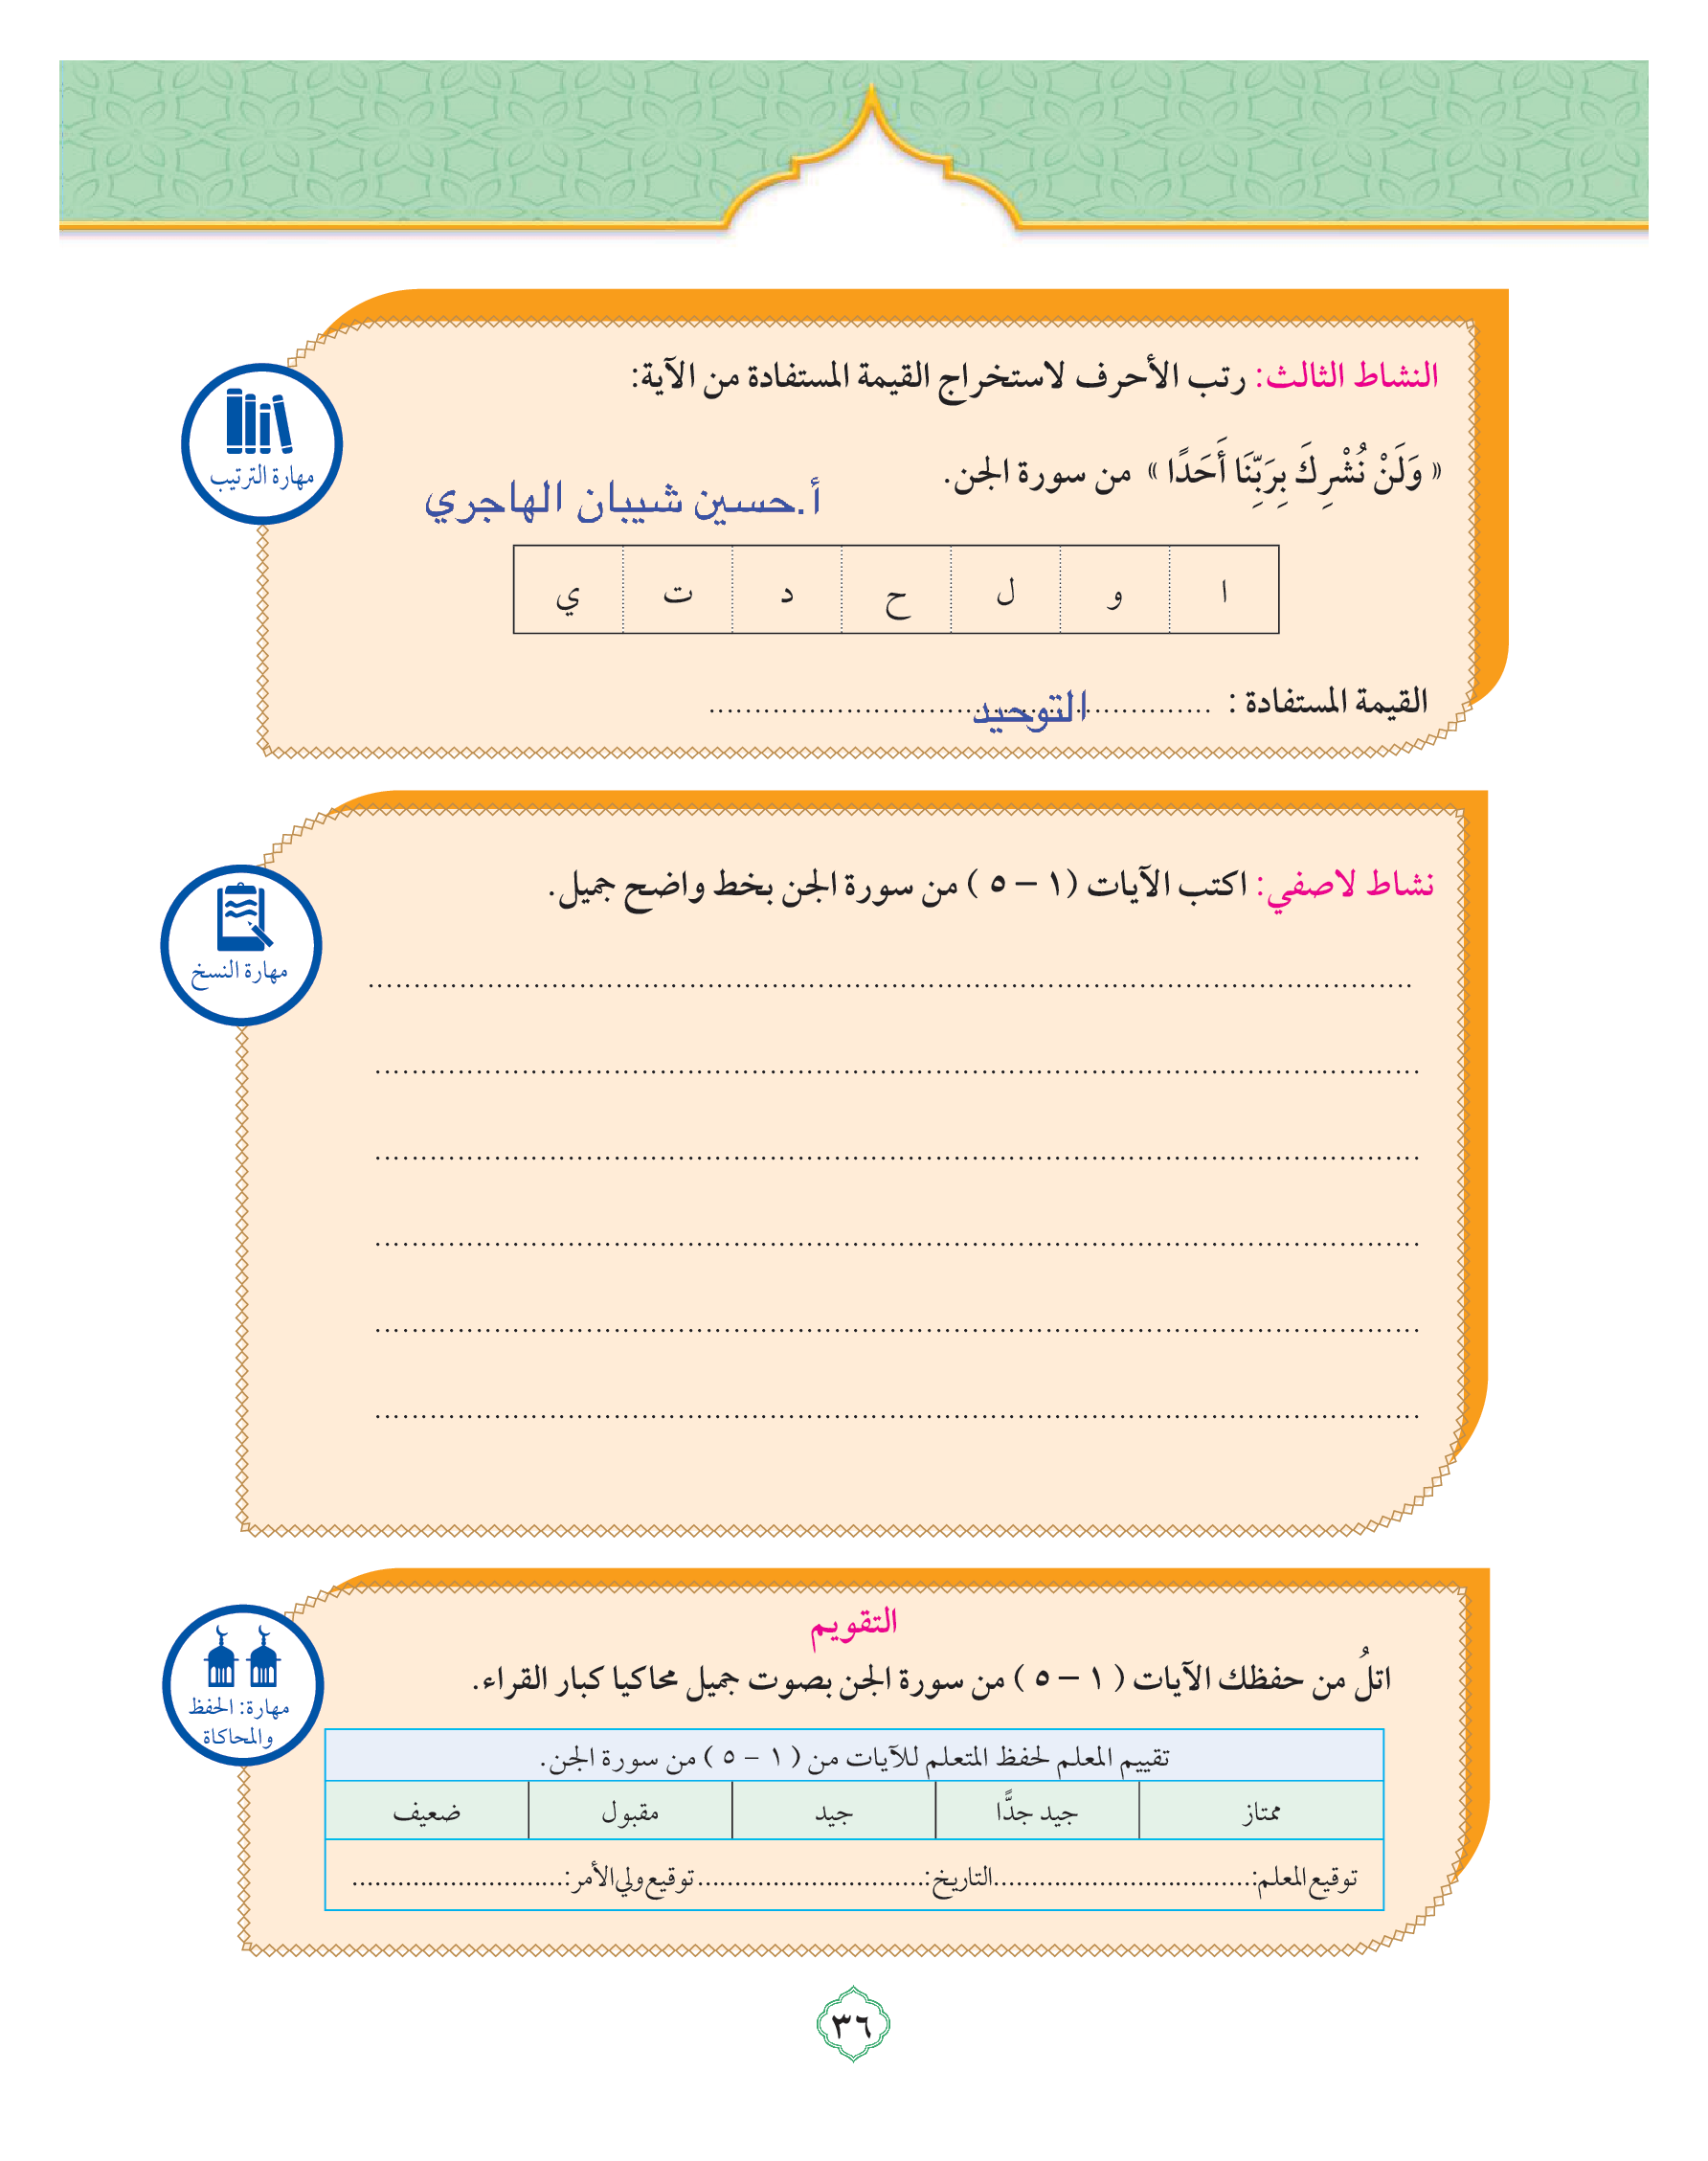 النشاط الثالث: رتب الأحرف لاستخراج القيمة المستفادة من الآية:
مهارة الترتيب
« وَلَنْ نُشْرِكَ بِرَبِّنَا أَحَدًا » من سورة الجن.
أ.حسين شيبان الهاجري
ا و ل ح د ت ي
القيمة المستفادة : ........................................................
التوحيد
نشاط لاصفي: اكتب الآيات (١ – ٥ ) من سورة الجن بخط واضح جميل.
مهارة النسخ
التقويم
اتلُ من حفظك الآيات ( ١ – ٥ ) من سورة الجن بصوت جميل محاكيا كبار القراء.
مهارة: الحفظ
والمحاكاة
تقييم المعلم لحفظ المتعلم للآيات من ( ١ – ٥ ) من سورة الجن.
ممتاز جيد جدًّا جيد مقبول ضعيف
توقيع المعلم:..................................التاريخ:..............................توقيع ولي الأمر:............................
٣٦